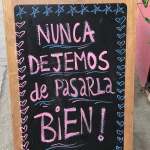 NUNCA
DEJEMOS
de PASARLA
BIEN!